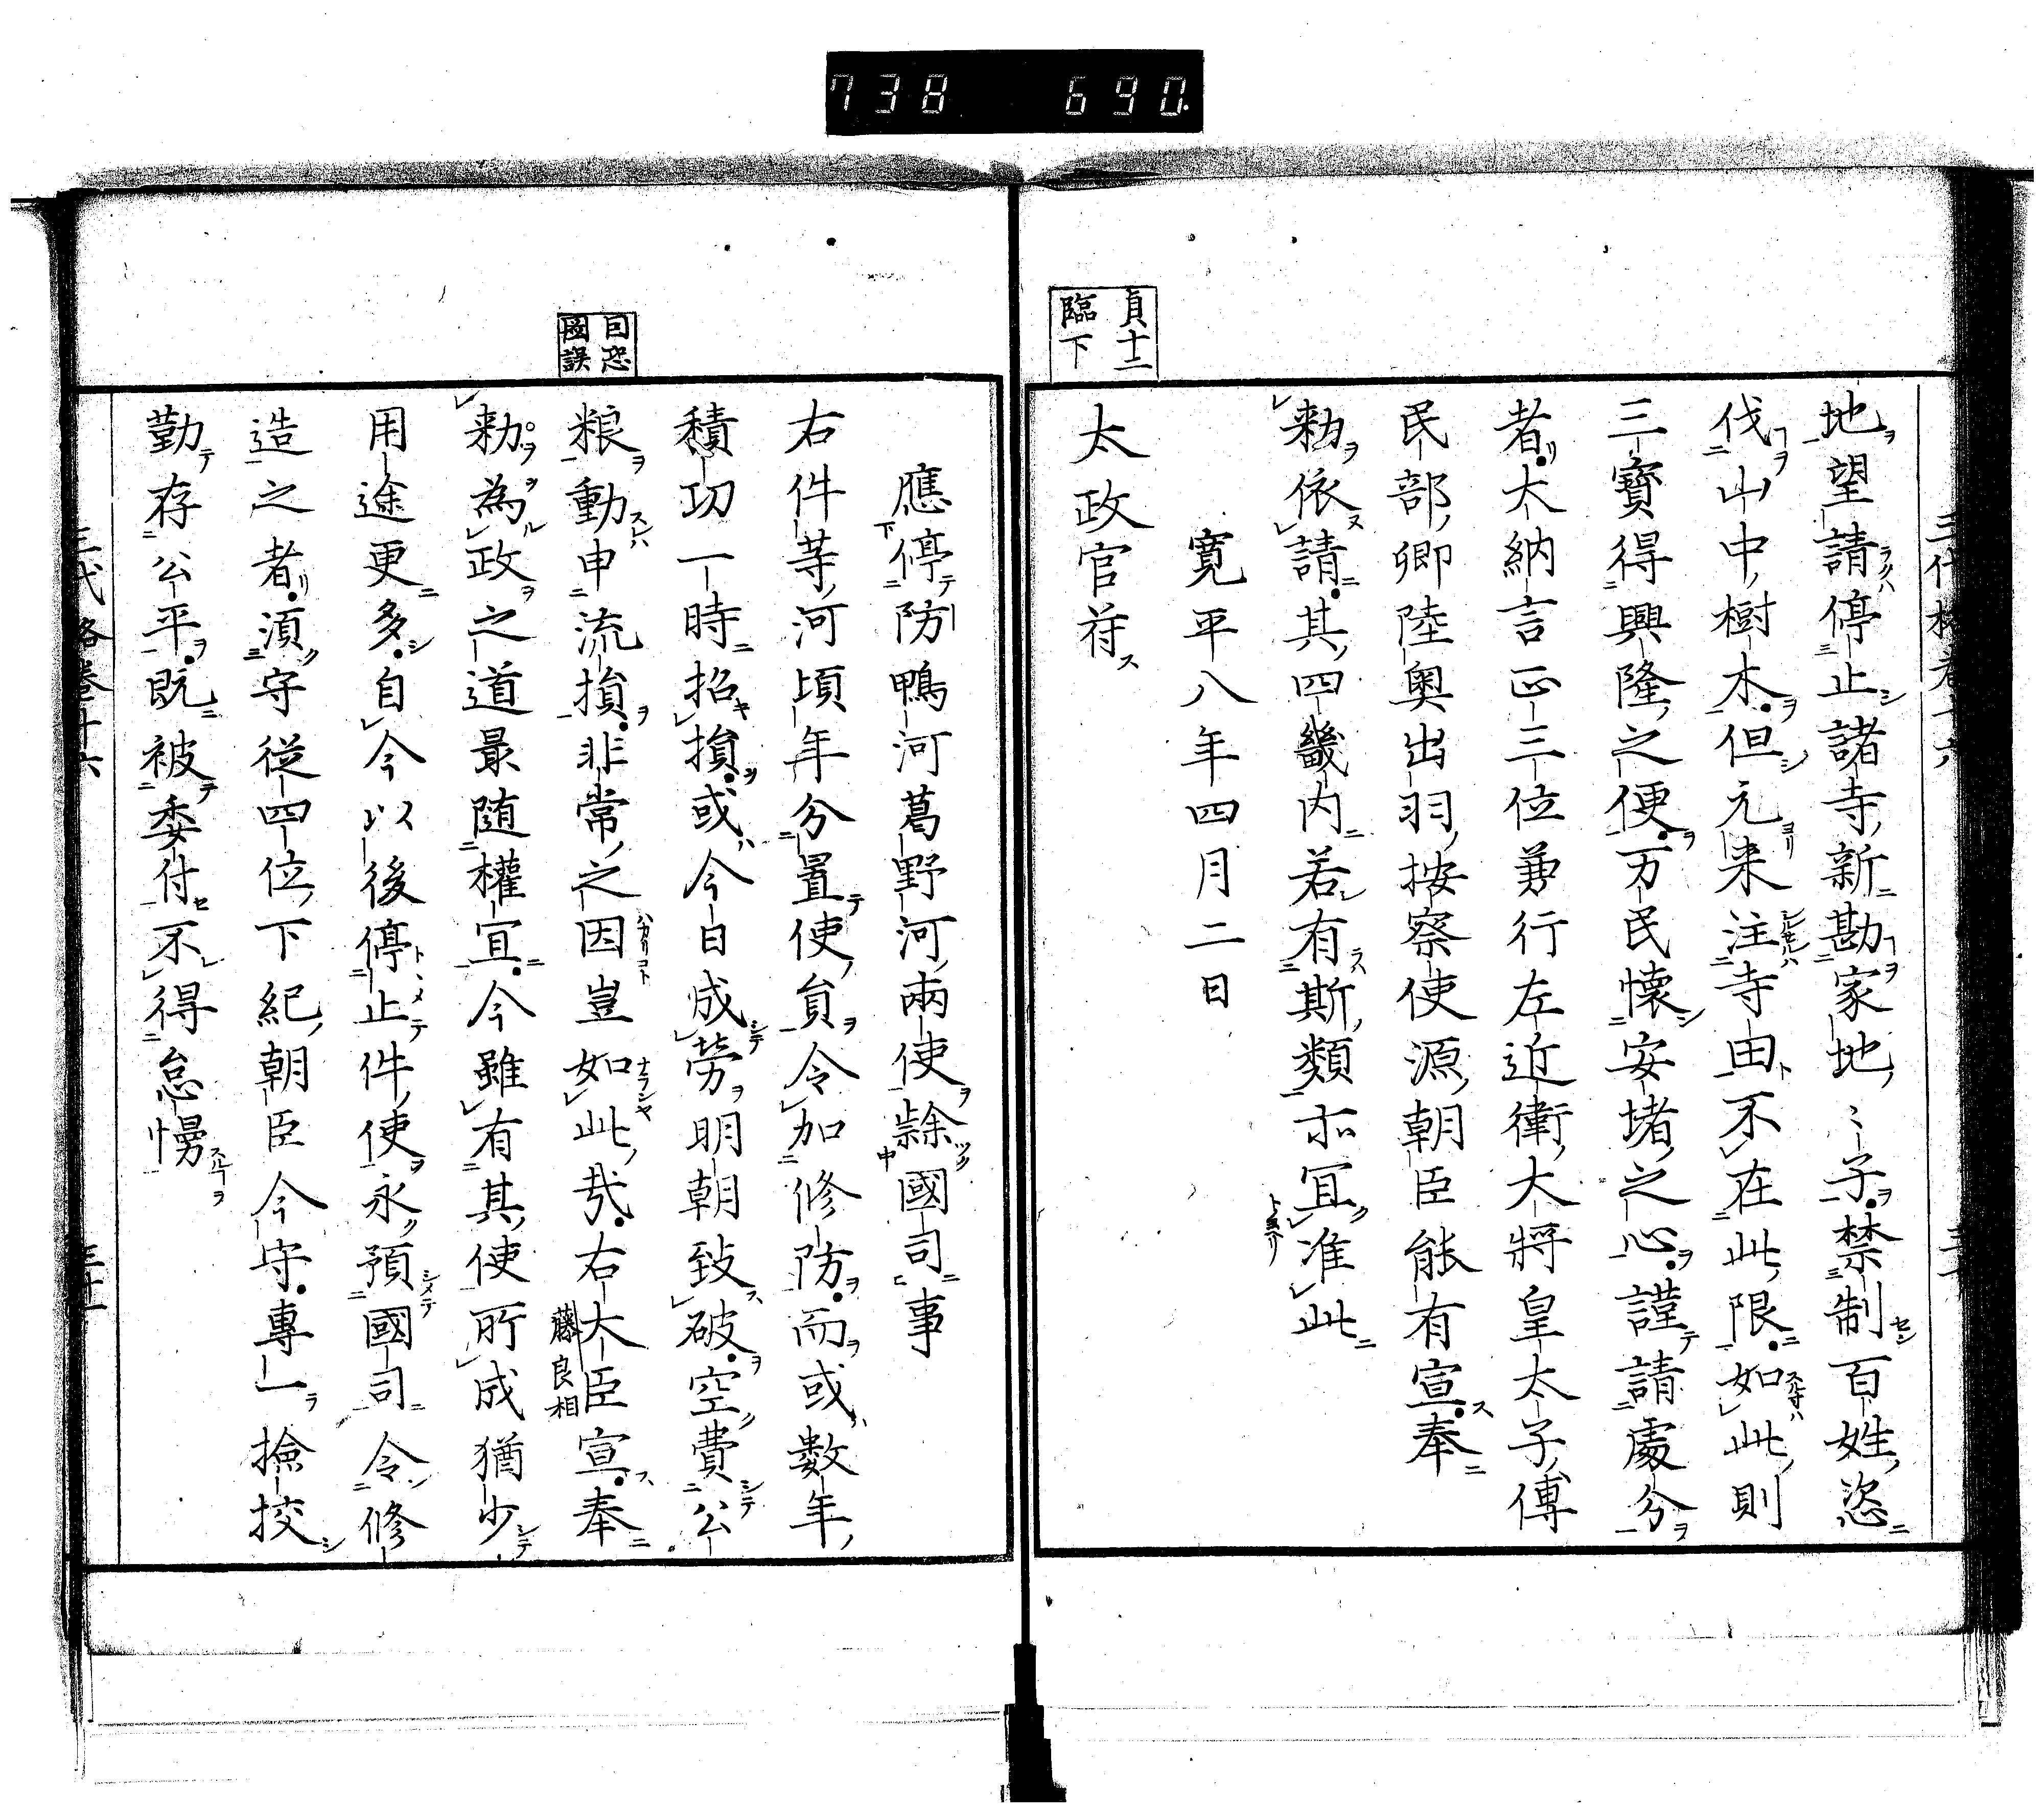 738 690
三代格卷十六
貞十二
臨下
地望請停止諸寺新勘家地〻子禁制百姓恣
伐山中樹木但元来注寺田不在此限如此則
三寳得興隆之便万民懐安堵之心謹請處分
者大納言正三位兼行左近衛大將皇太子傅
民部卿陸奥出羽按察使源朝臣能有宣奉
勅依請其四畿内若有斯類亦冝准此
寛平八年四月二日
太政官符
應停防鴨河葛野河兩使隷國司事
右件等河頃年分置使負令加修防而或數年
積功一時招損或今日成勞明朝致破空費公
因恐
國誤
粮動申流損非常之因豈如此㢤右大臣宣奉
藤良相
勅為政之道最随權冝今雖有其使所成猶少
用途更多自今以後停止件使永預國司令修
造之者湏守従四位下紀朝臣今守專一撿挍
勤存公平既被委付不得怠慢
三代格卷十六